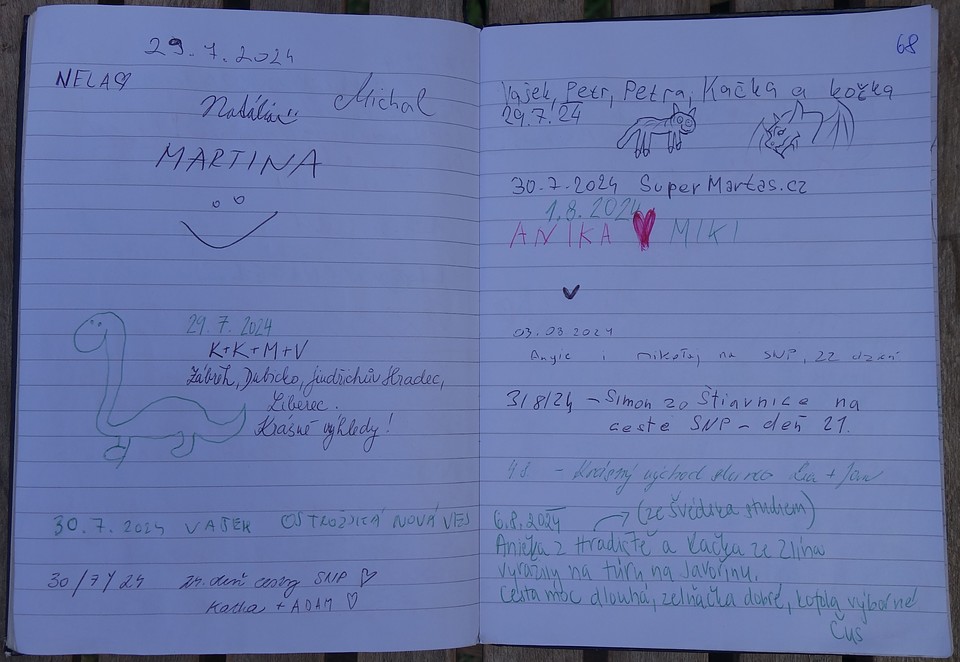 29.7.2024
NELA♡
Natálie
Michal
MARTINA
29.7.2024
K+K+M+V
Zábřeh, Dubicko, Jindřichův Hradec,
Liberec.
Krásné výhledy!
30.7.2024 VAŠEK OSTROŽSKÁ NOVÁ VES
30/7/24 24. deň cesty SNP ♡
Katka + ADAM ♡
68
Vašek, Petr, Petra, Kačka a kočka
29.7.24
30.7.2024 SuperMartas.cz
1.8.2024
ANIKA ♥ MIKI
03.08.2024
Angie i mikołaj na SNP, 22 dzień
3/8/24 – Simon zo Štiavnice na
ceste SNP – deň 21.
4.8 - východ + Jan
6.8.2024 (ze Švédska studiem)
Anička z Hradiště a Kačka ze Zlína
vyrazily na túru na Javořinu.
Cesta moc dlouhá, zelňačka dobrá, kofola výborné
Čus